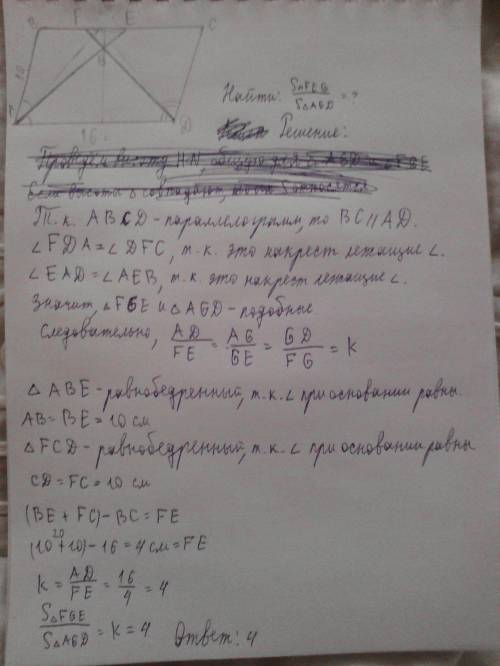 B F E C
10
G
16
A D
Найти: S△FEG / S△AGD = ?
Решение:
Проведём высоту HN, общую для △ AGD и △ FGE
Если высоты △ совпадают,
Т.к. ABCD - параллелограмм, то BC || AD.
∠FDA = ∠DFC, т.к. это накрест лежащие ∠.
∠EAD = ∠AEB, т.к. это накрест лежащие ∠.
Значит, △FGE и △AGD - подобные
Следовательно, AD/FE = AG/GE = GD/FG = k
△ABE - равнобедренный, т.к. ∠ при основании равны.
AB = BE = 10 см
△FCD - равнобедренный, т.к. ∠ при основании равны
CD = FC = 10 см
(BE + FC) - BC = FE
20
(10 + 10) - 16 = 4 см = FE
k = AD/FE = 16/4 = 4
S△FGE / S△AGD = k = 4 Ответ: 4